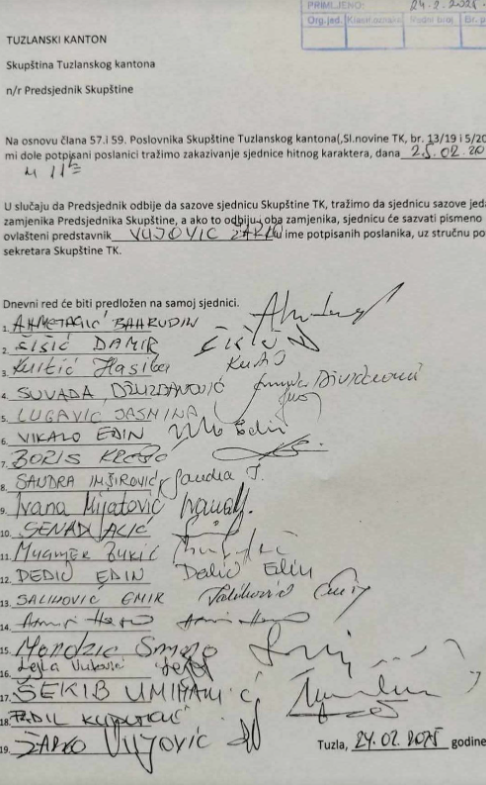 PRIMLJENO: 24-2-2025.
Org.jed. Klasif.oznaka Redni broj Br. p
TUZLANSKI KANTON
Skupština Tuzlanskog kantona
n/r Predsjednik Skupštine
Na osnovu člana 57.i 59. Poslovnika Skupštine Tuzlanskog kantona(,Sl.novine TK, br. 13/19 i 5/20
mi dole potpisani poslanici tražimo zakazivanje sjednice hitnog karaktera, dana 25.02.20
u 11
U slučaju da Predsjednik odbije da sazove sjednicu Skupštine TK, tražimo da sjednicu sazove jeda
zamjenika Predsjednika Skupštine, a ako to odbiju oba zamjenika, sjednicu će sazvati pismeno
ovlašteni predstavnik VUJOVIĆ ŽARKO u ime potpisanih poslanika, uz stručnu po
sekretara Skupštine TK.
Dnevni red će biti predložen na samoj sjednici.
1. AHMETAGIĆ BAHRUDIN
2. ŠIŠIĆ DAMIR
3. Kulić
4. SUVADA DŽUZDANOVIĆ
5. LUGAVIĆ JASMINA
6. VIKALO EDIN
7. BORIS KREŠO
8. SANDRA IMŠIROVIĆ Sandra I.
9. Ivana Mijatović IvanaM.
10. SENAD ALIĆ
11. Mujanjer
12. DEDIĆ EDIN Dedić Edin
13. SALIHOVIĆ EMIR Salihović Emir
14.
15. Mordzic
16. Lejla Vuković Lejla
17. ŠEKIB UMIHANIĆ
18. FADIL
19. ŽARKO VUJOVIĆ
Tuzla, 24.02.2025 godine